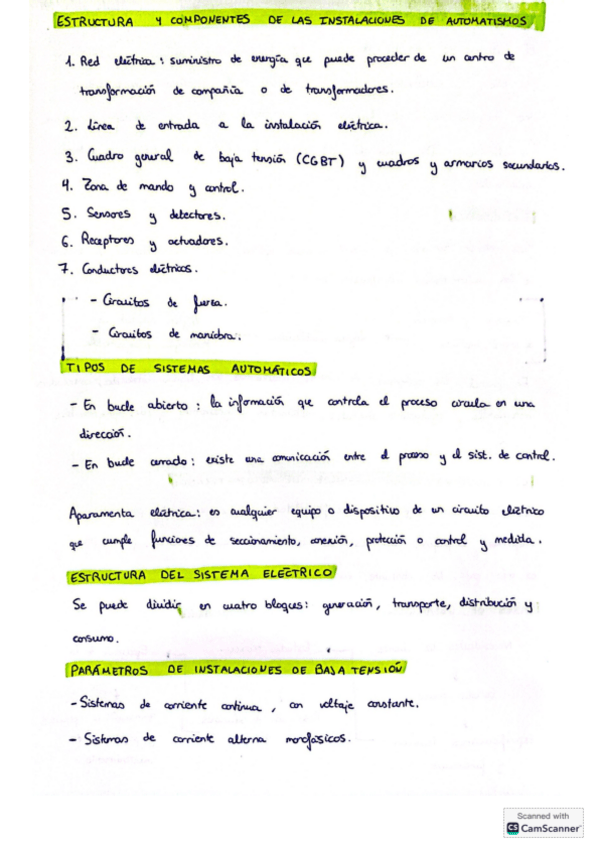 ESTRUCTURA Y COMPONENTES DE LAS INSTALACIONES DE AUTOMATISMOS
1. Red eléctrica: suministro de energía que puede proceder de un centro de
transformación de compañía o de transformadores.
2. Línea de entrada a la instalación eléctrica.
3. Cuadro general de baja tensión (CGBT) y cuadros y armarios secundarios.
4. Zona de mando y control.
5. Sensores y detectores.
6. Receptores y actuadores.
7. Conductores eléctricos.
- Circuitos de fuerza.
- Circuitos de maniobra.
TIPOS DE SISTEMAS AUTOMÁTICOS
- En bucle abierto: la información que controla el proceso circula en una
dirección.
- En bucle cerrado: existe una comunicación entre el proceso y el sist. de control.
Aparamenta eléctrica: es cualquier equipo o dispositivo de un circuito eléctrico
que cumple funciones de seccionamiento, conexión, protección o control y medida.
ESTRUCTURA DEL SISTEMA ELÉCTRICO
Se puede dividir en cuatro bloques: generación, transporte, distribución y
consumo.
PARÁMETROS DE INSTALACIONES DE BAJA TENSIÓN
- Sistemas de corriente continua, con voltaje constante.
- Sistemas de corriente alterna monofásicos.
Scanned with
CS CamScanner